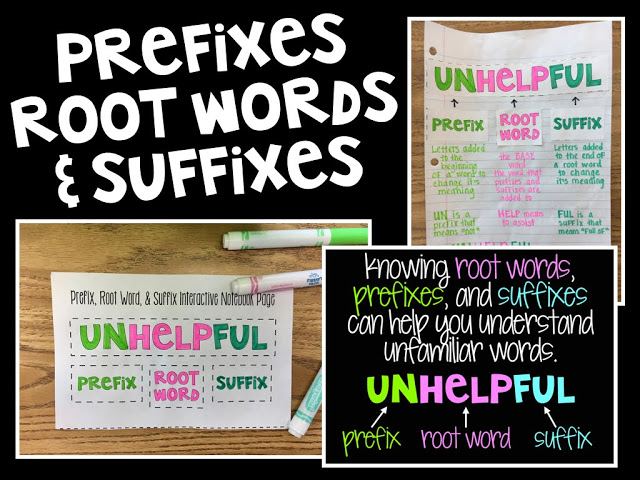 PREFIXES
ROOT WORDS
& SUFFIXES
UNHELPFUL
PREFIX
ROOT
WORD
SUFFIX
Letters added
to the
beginning
of a word to
change it's
meaning
the BASE
word
the word that
prefixes and
suffixes are
added to
Letters added
to the end of
a root word
to change
it's meaning
UN is a
prefix that
means "not"
HELP means
to assist
FUL is a
suffix that
means "full of"
Prefix, Root Word, & Suffix Interactive Notebook Page
UNHELPFUL
PREFIX
ROOT
WORD
SUFFIX
Knowing root words,
prefixes, and suffixes
can help you understand
unfamiliar words.
UNHELPFUL
prefix root word suffix